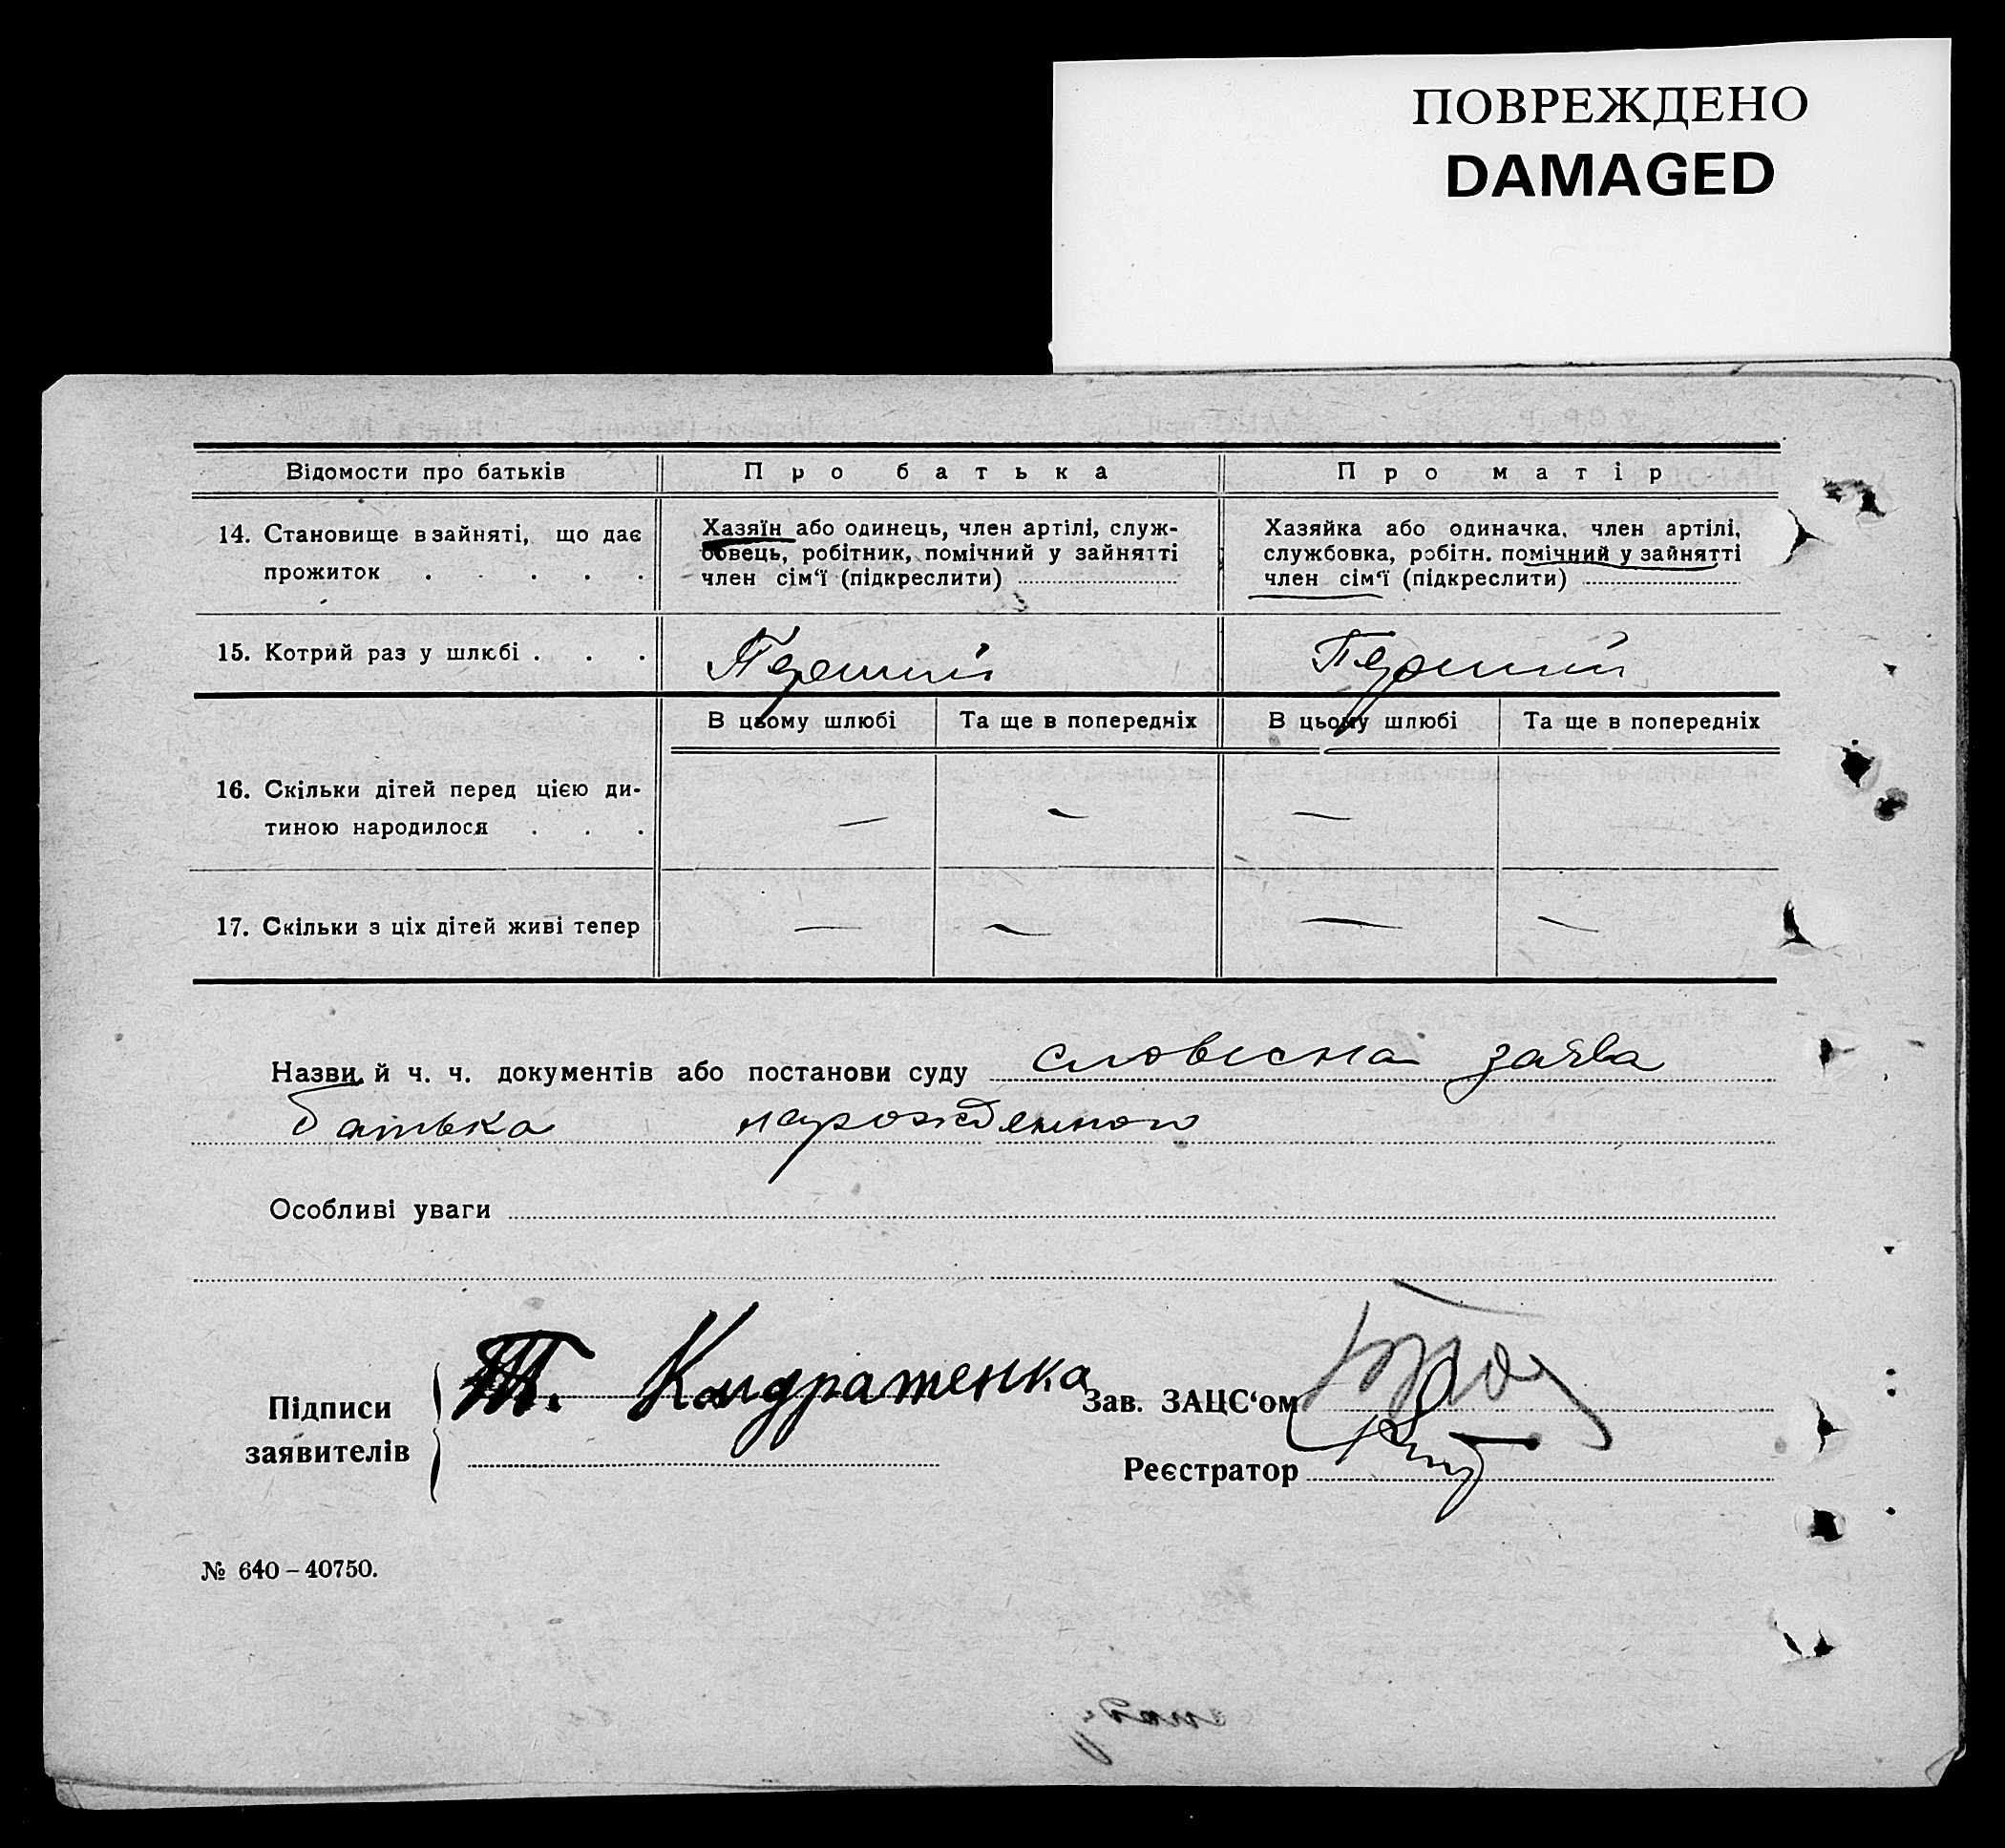 ПОВРЕЖДЕНО
DAMAGED
Відомости про батьків
Про батька
Про матір
14. Становище в зайняті, що дає
прожиток . . . . .
Хазяїн або одинець, член артілі, служ-
бовець, робітник, помічний у зайнятті
член сім‘ї (підкреслити)
Хазяйка або одиначка, член артілі,
службовка, робітн. помічний у зайнятті
член сім‘ї (підкреслити)
15. Котрий раз у шлюбі . . .
Перший
Перший
В цьому шлюбі
Та ще в попередніх
В цьому шлюбі
Та ще в попередніх
16. Скільки дітей перед цією ди-
тиною народилося . . .
— — —
17. Скільки з ціх дітей живі тепер
— — — —
Назви й ч. ч. документів або постанови суду словесна заява
батька нарожденного
Особливі уваги
Підписи
заявителів
Т. Кандратенка
Зав. ЗАЦС‘ом
Реєстратор
№ 640–40750.